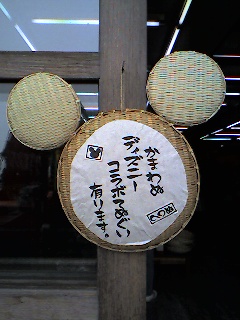 かまわぬ
ディズニー
コラボてぬぐい
有ります。